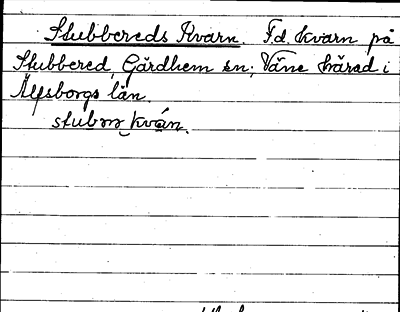 Stubbereds Kvarn. F.d. kvarn på
Stubbered, Gärdhem sn; Väne härad i
Älfsborgs län.